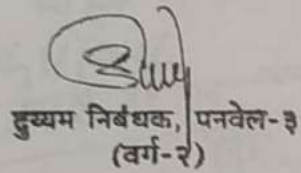 दुय्यम निबंधक, पनवेल-३
(वर्ग-२)